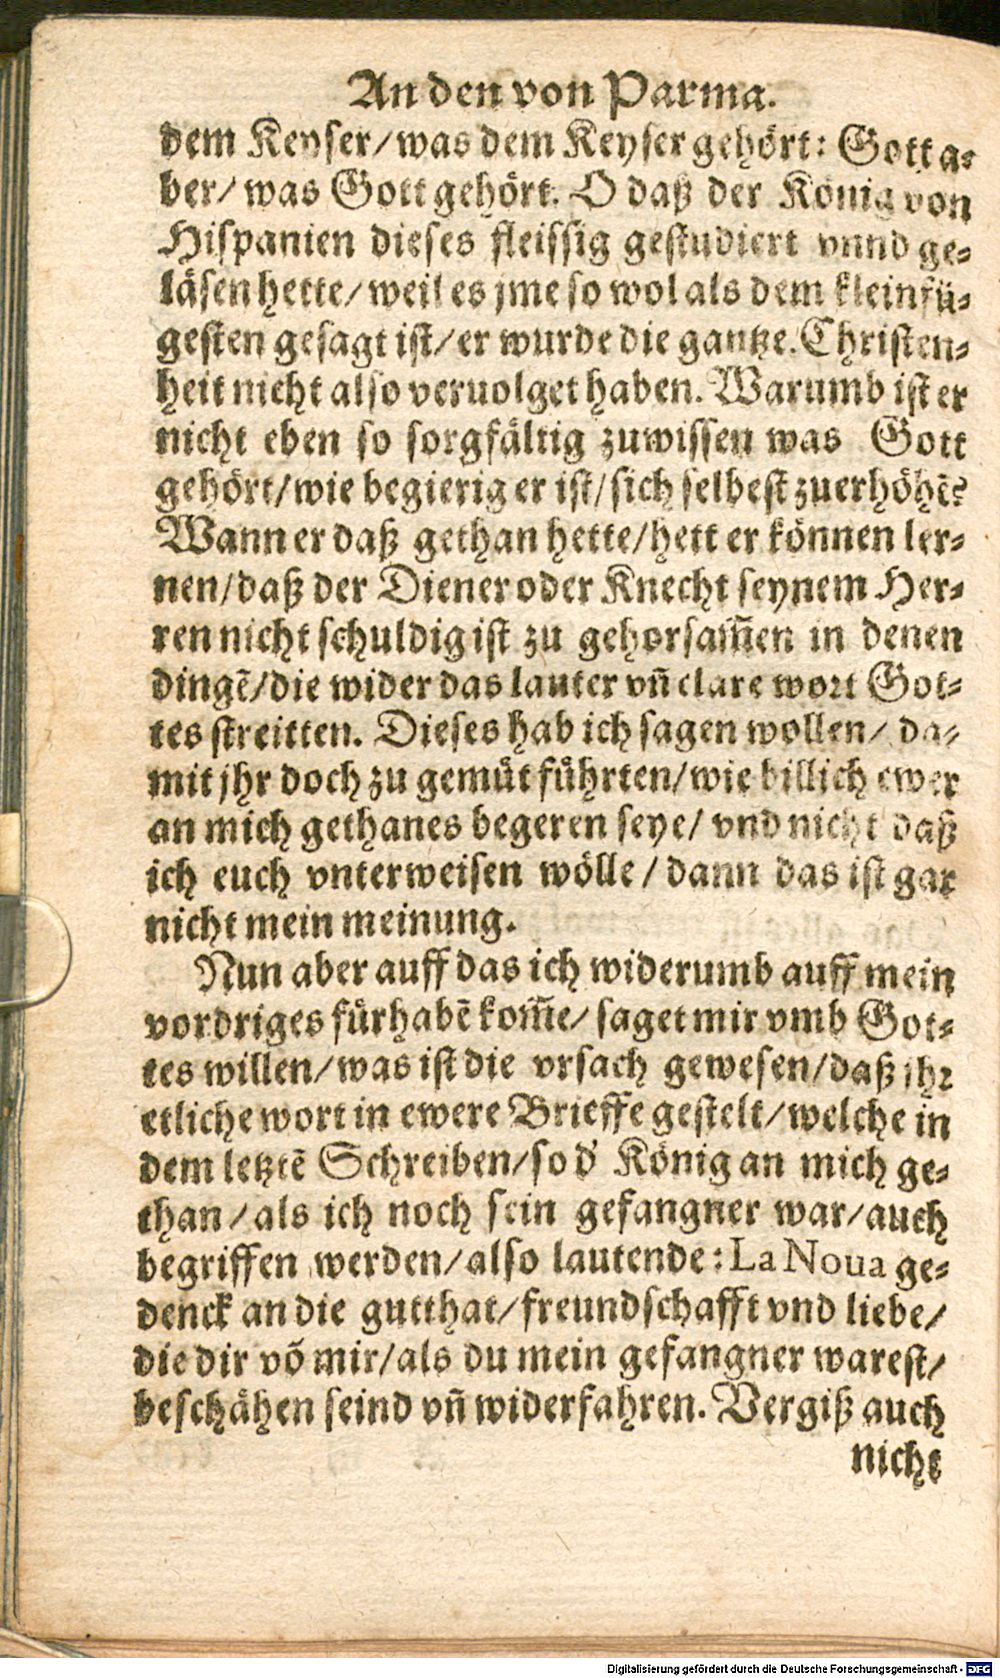 An den von Parma.
dem Keyser/was dem Keyser gehört: Gott a-
ber/ was Gott gehört. O daß der König von
Hispanien dieses fleissig gestudiert vnnd ge-
läsen hette/ weil es jme so wol als dem kleinfü-
gesten gesagt ist/ er wurde die gantze. Christen-
heit nicht also veruolget haben. Warumb ist er
nicht eben so sorgfältig zuwissen was Gott
gehört/wie begierig er ist/ sich selbest zuerhöhẽ?
Wann er daß gethan hette/hett er können ler-
nen/daß der Diener oder Knecht seynem Her-
ren nicht schuldig ist zu gehorsam̃en in denen
dingẽ/die wider das lauter vñ clare wort Got-
tes streitten. Dieses hab ich sagen wollen/ da-
mit jhr doch zu gemüt führten/wie billich ewer
an mich gethanes begeren seye/ vnd nicht daß
ich euch vnterweisen wölle/ dann das ist gar
nicht mein meinung.
Nun aber auff das ich widerumb auff mein
vordriges fürhabẽ kom̃e/ saget mir vmb Got-
tes willen/was ist die vrsach gewesen/daß jhr
etliche wort in ewere Brieffe gestelt/welche in
dem letztẽ Schreiben/so d' König an mich ge-
than/als ich noch sein gefangner war/auch
begriffen werden/also lautende: La Noua ge-
denck an die gutthat/freundschafft vnd liebe/
die dir võ mir/als du mein gefangner warest/
beschähen seind vñ widerfahren. Vergiß auch
nicht
Digitalisierung gefördert durch die Deutsche Forschungsgemeinschaft - DFG